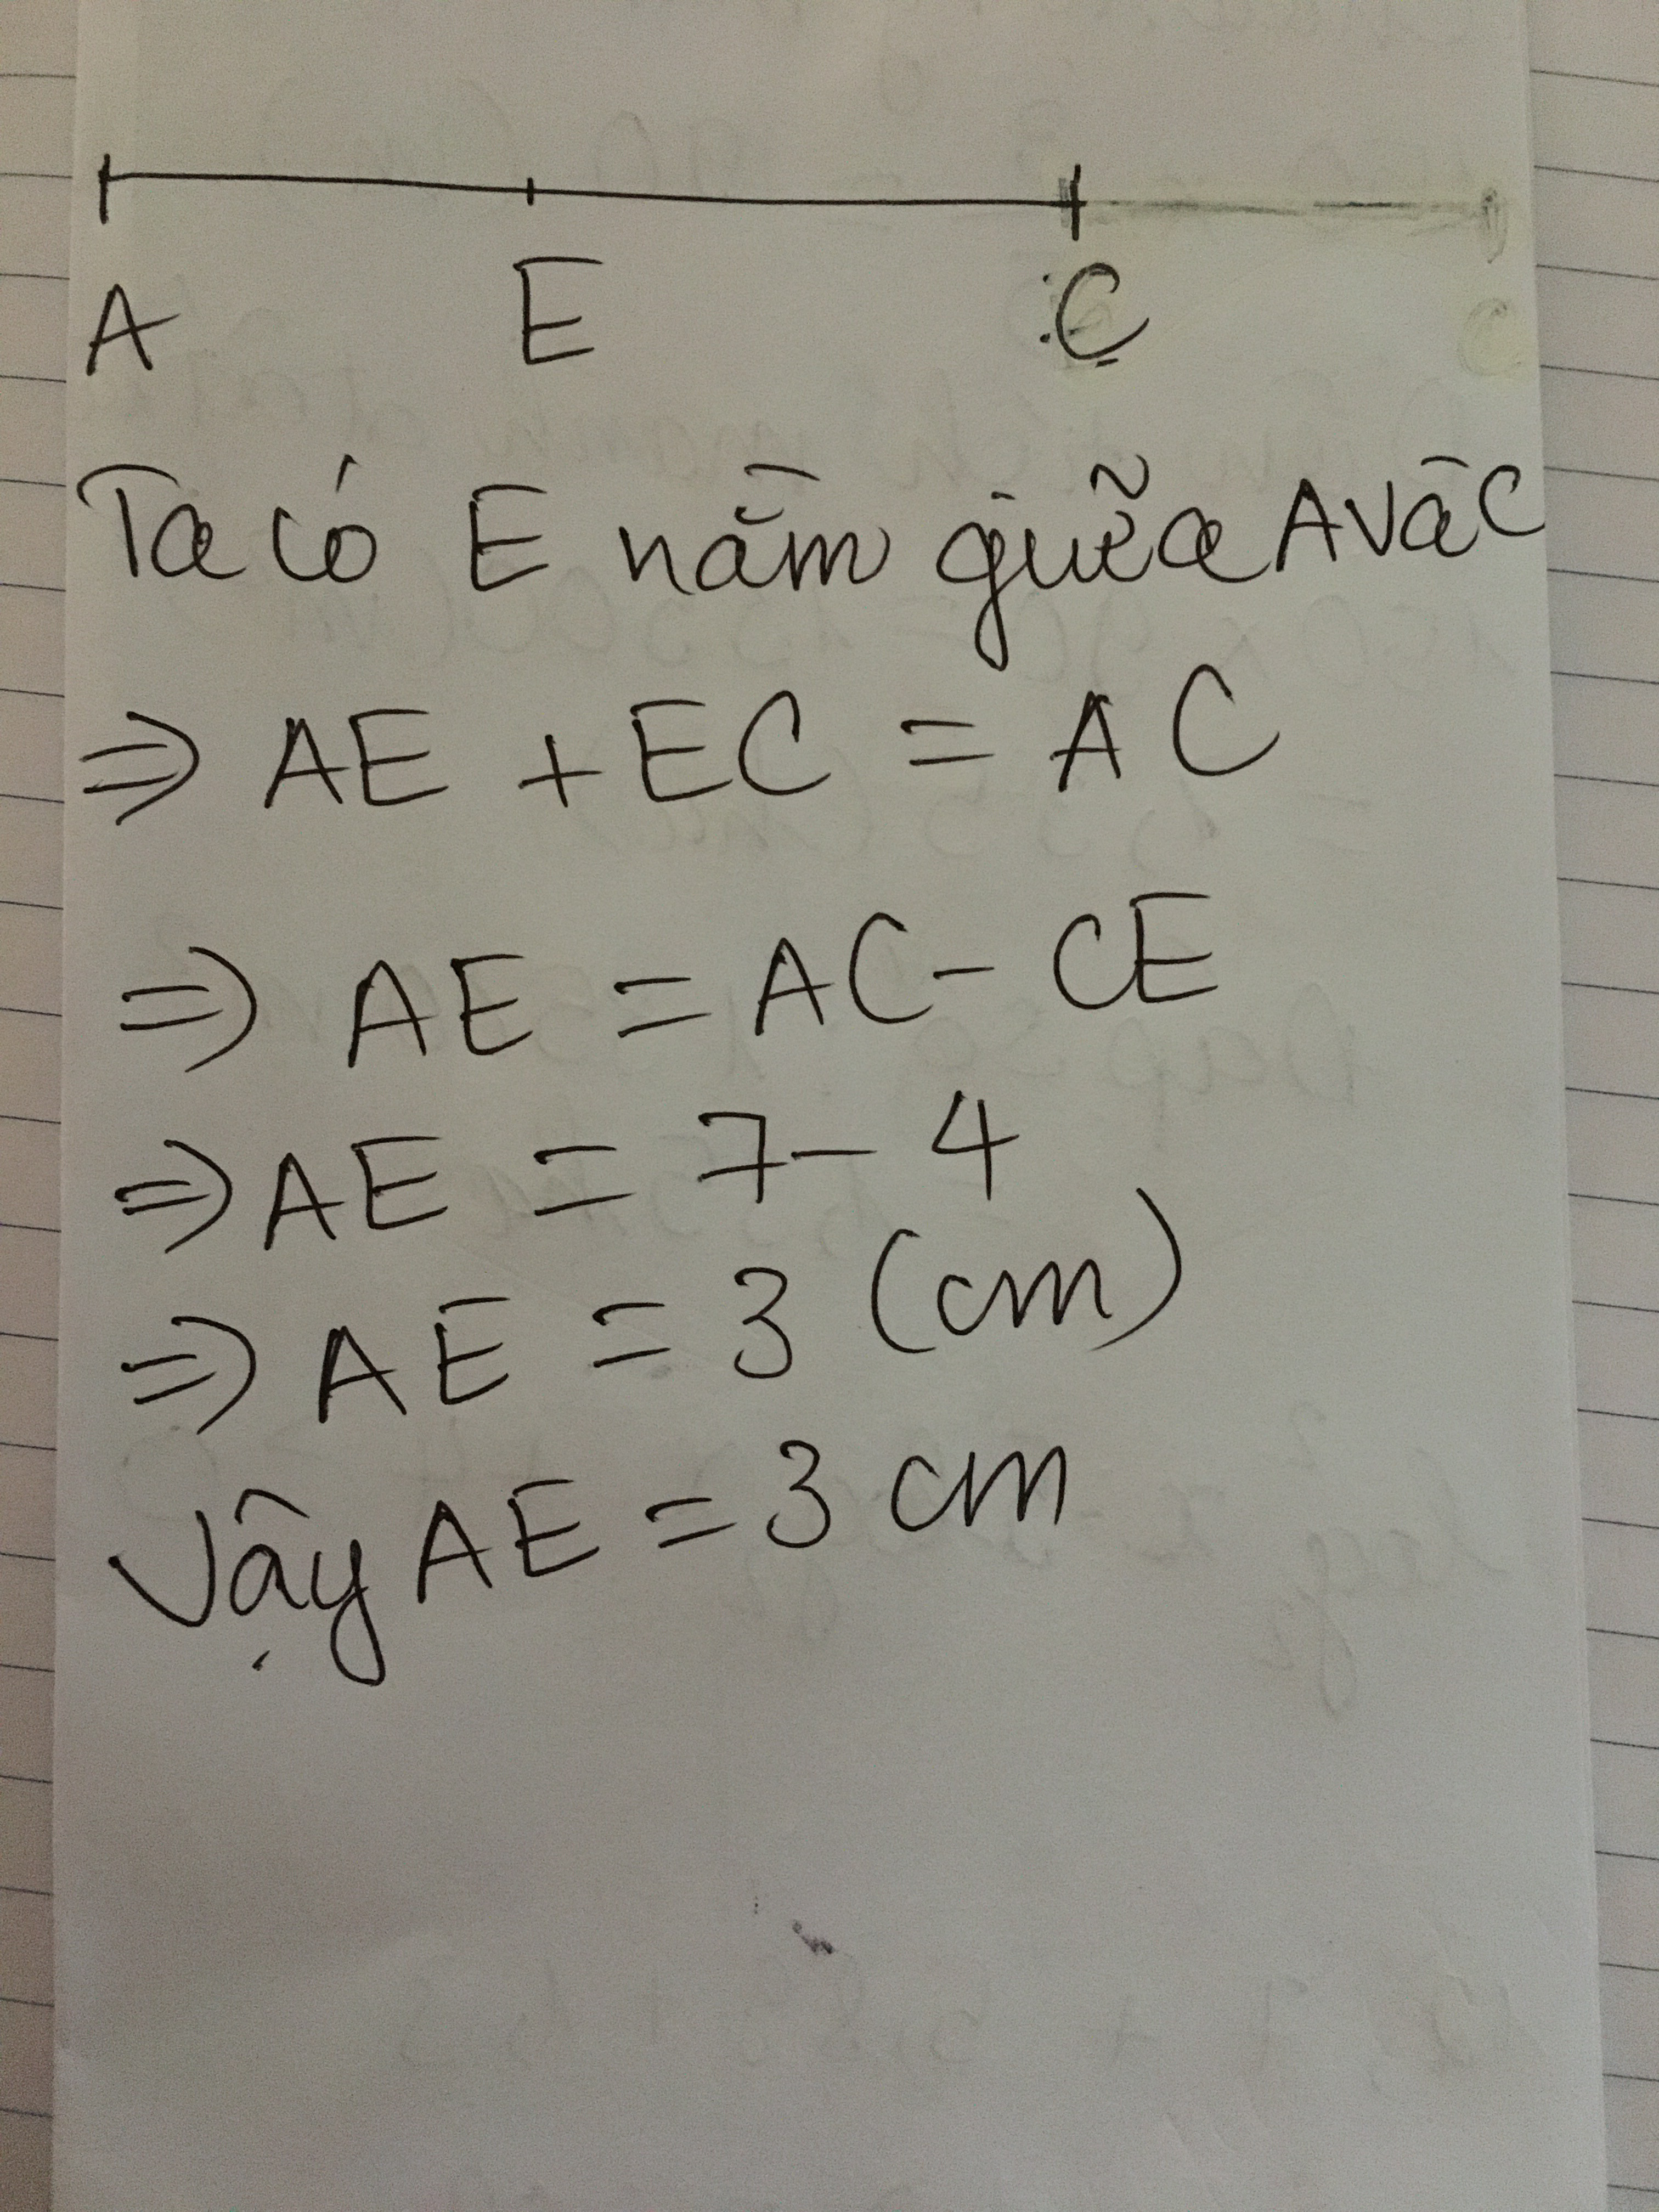 A E C
Ta có E nằm giữa A và C
⇒ AE + EC = AC
⇒ AE = AC - CE
⇒ AE = 7 - 4
⇒ AE = 3 (cm)
Vậy AE = 3 cm